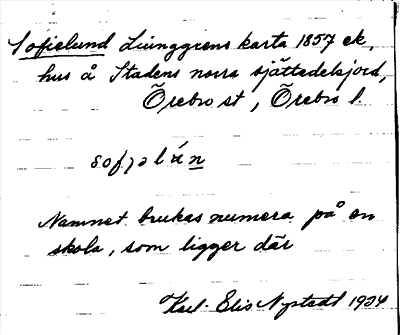 Sofielund Ljunggrens karta 1857 ek,
hus å Stadens norra sjättedelsjord,
Örebro st, Örebro l.
Namnet brukas numera på en
skola, som ligger där
Karl-Elis Nystedt 1934